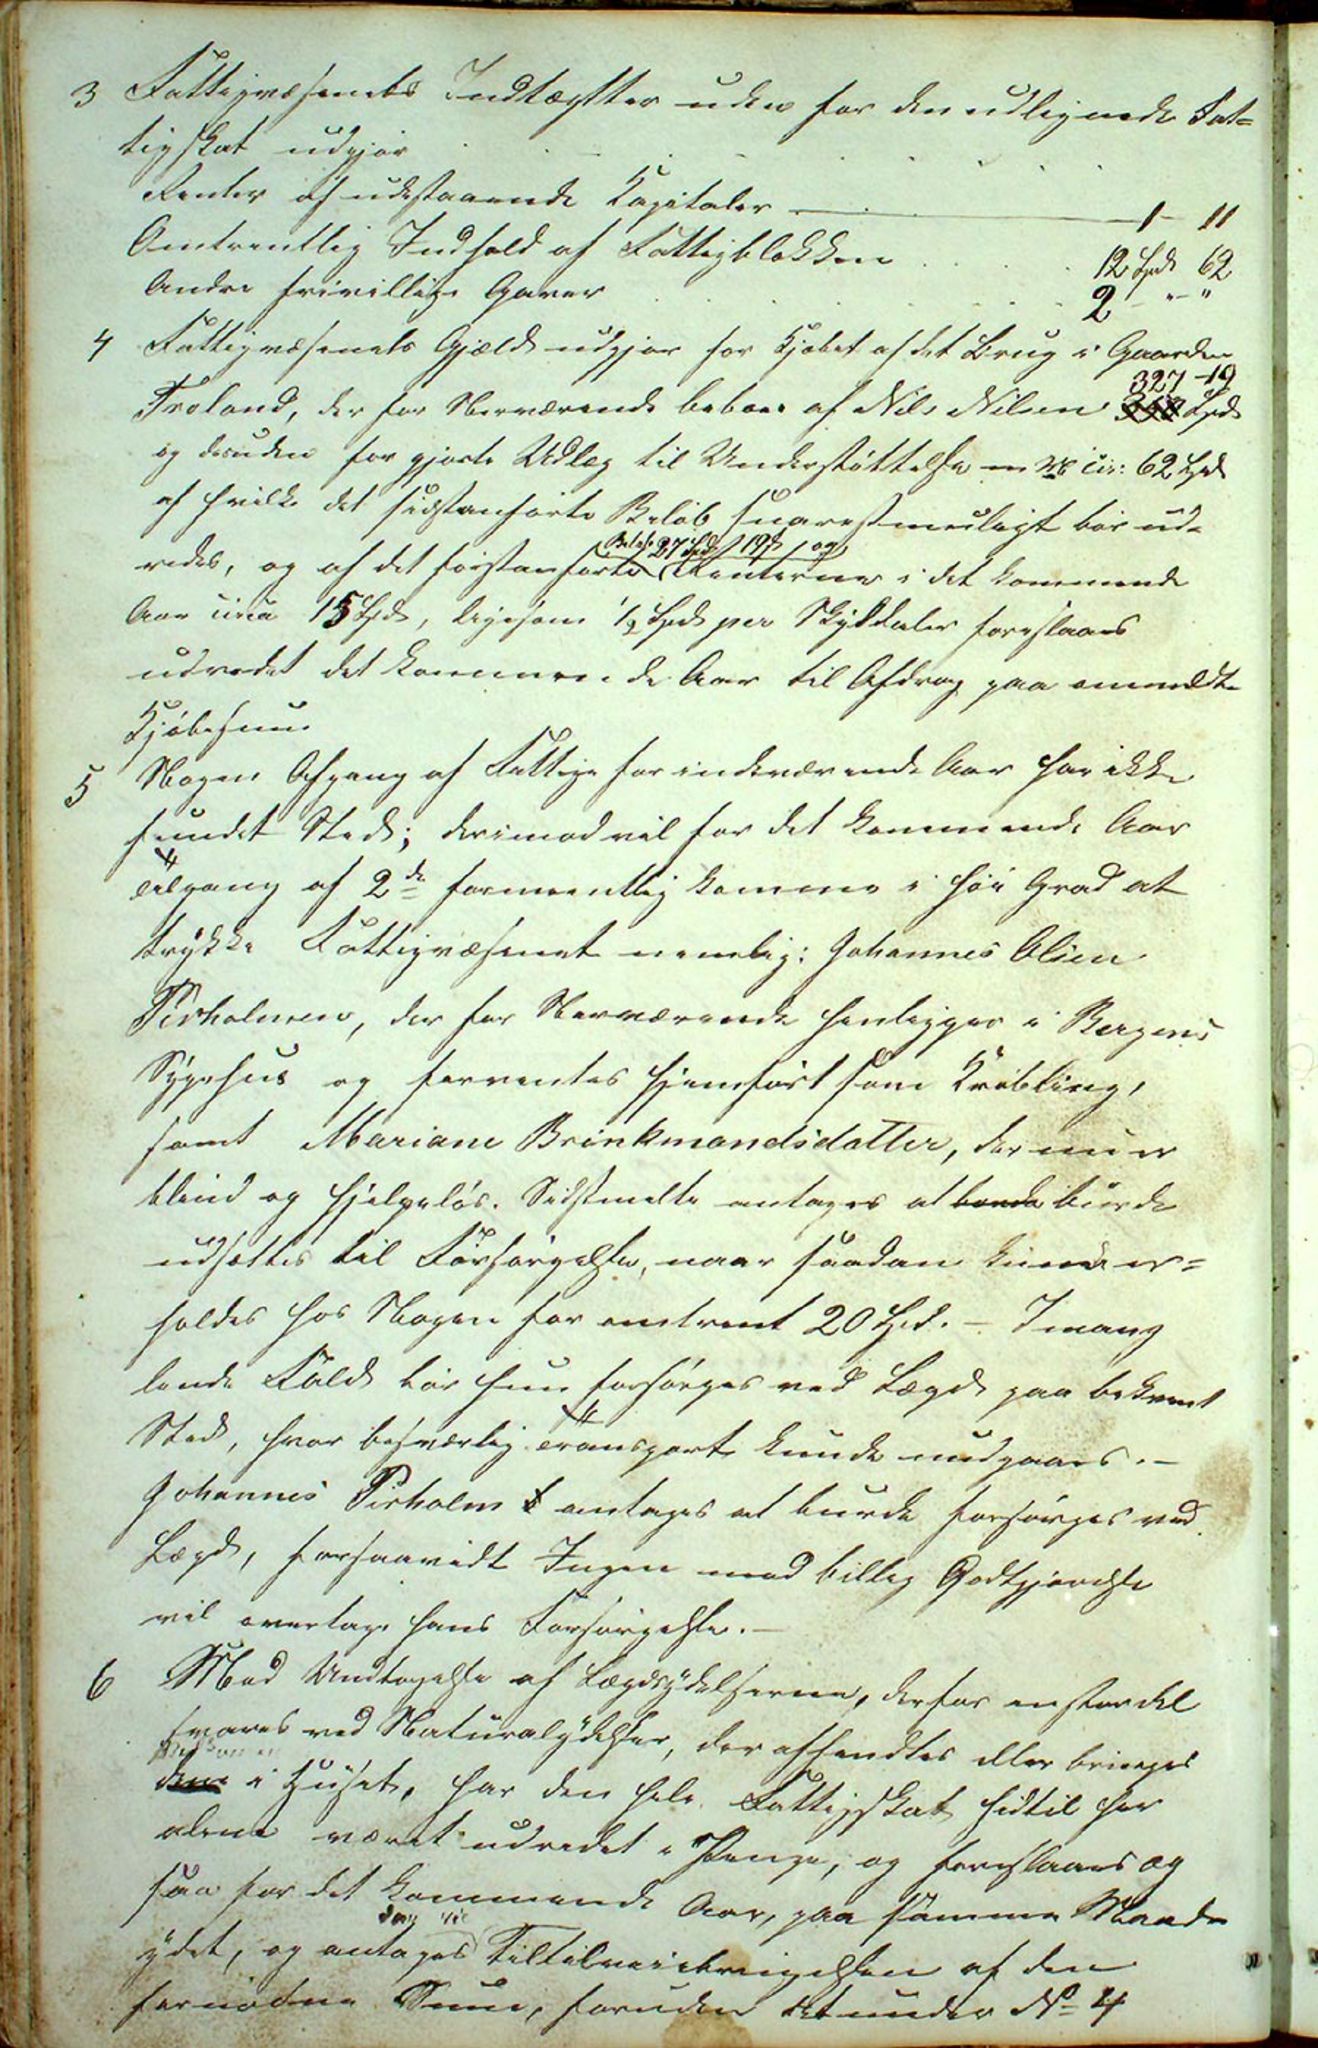 3 Fattigvæsenets Indtægtter uden for den udlignede Fat=
tigskat udgjør
Renter af udestaaende Kapitaler — 1 11
Omtrentlig Indhold af Fattigblokken . . . . 12 Spd 62
Andre frivillige Gaver . . . . 2 - " - "
4 Fattigvæsenets Gjæld udgjør for Kjøbet af det Brug i Gaarden
327 - 19
Troland, der for Nærværende beboes af Nils Nilsen Spd
og desuden for gjorte Udlæg til Understøttelse cir: 62 Spd
af hvilke det sidstanførte Beløb snarestmuligt bør ud-
Beløb 27 Spd 19 og
redes, og af det førstanførte Renterne i det kommende
Aar circa 15 Spd, ligesom ½ Spd per Skylddaler foreslaaes
udredet det kommende Aar til Afdrag paa ommeldte
Kjøbesum
5 Nogen Afgang af Fattige for indeværende Aar har ikke
fundet Sted; derimod vil for det kommende Aar
Tilgang af 2de formeentlig komme i høi Grad at
trykke Fattigvæsenet nemlig: Johannes Olsen
Pirholmen, der for Nærværende henligger i Bergens
Sygehus og forventes hjemført som Krøbling,
samt Mariane Brinkmandsdatter, der nu er
blind og hjelpeløs. Sidstmelte antages at burde
udsættes til Forsørgelse, naar saadan kunde er=
holdes hos Nogen for omtrent 20 Spd. - I mang
lende Fald bør hun forsørges ved Lægd paa bekvemt
Sted, hvor besværlig Transport kunde undgaaes. -
Johannes Pirholm antages at burde forsørges ved
Lægd, forsaavidt Ingen mod billig Godtgjørelse
vil overtage hans Forsørgelse. -
6 Med Undtagelse af Lægdsydelserne, der for en stor del
svares ved Naturalydelser, der afhendtes eller bringes
i Huset, har den hele Fattigskat hidtil her
alene været udredet i Penge, og foreslaaes og
saa for det kommende Aar, paa samme Maade
ydet, og antages Tiltilveiebringelsen af den
fornødne Sum, foruden det under No 4